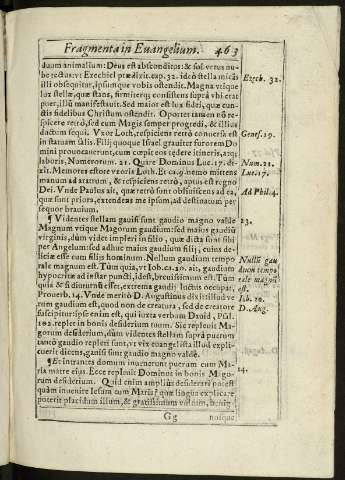 Fragmenta in Euangelium. 463
duum animalium: Deus est absconditus: & sol verus nu-
be tectus: vt Ezechiel prædixit. cap. 32. ideò stella micās
illi obsequitur, ipsumque vobis ostendit. Magna vtique
lux stellæ, quæ stans, firmiterq; consistens suprà vbi erat
puer, illū manifestauit. Sed maior est lux fidei, quæ cun-
ctis fidelibus Christum ostendit. Oportet tamen nō re-
spicere retrò, sed cum Magis semper progredi, & illius
ductum sequi. Vxor Loth, respiciens retrò conuersa est
in statuam salis. Filij quoque Israel grauiter furorem Do
mini prouocauerunt, cum cœpisset eos tædere itineris, atq;
laboris, Numerorum. 21. Quare Dominus Luc. 17. di-
xit. Memores estote vxoris Loth. Et ca. 9. nemo mittens
manum ad aratrum, & respiciens retrò, aptus est regno
Dei. Vnde Paulus ait, quæ retrò sunt obliuiscens ad ea,
quæ sunt priora, extendens me ipsum, ad destinatum per
sequor brauium.
¶ Videntes stellam gauisi sunt gaudio magno valdè
Magnum vtique Magorum gaudium: sed maius gaudiū
virginis, dùm videt impleri in filio, quæ dicta sont sibi
per Angelum: sed adhuc maius gaudium filij, cuius de-
liciæ esse cum filijs hominum. Nullum gaudium tempo
rale magnum est. Tùm quia, vt Iob. ca. 20. ait, gaudium
hypocritæ ad instar puncti, idest, breuissimum est. Tùm
quia & si diuturnū esset, extrema gaudij luctus occupat,
Prouerb. 14. Vnde meritò D. Augustinus dixit illud ve
rum gaudium est, quod non de creatura, sed de creatore
suscipitur: ipse enim est, qui iuxta verbum Dauid, Psal.
102. replet in bonis desiderium tuum. Sic repleuit Ma-
gorum desiderium, dùm videntes stellam suprà puerum
tantò gaudio repleri sunt, vt vix euangelista illud expli-
cuerit dicens, gauisi sunt gaudio magno valdè.
¶ Et intrantes domum inuenerunt puerum cum Ma-
ria matre eius. Ecce repleuit Dominus in bonis Mago-
rum desiderium. Quid enim ampliùs desiderari potest
quàm inuenire Iesum cum Maria? quæ lingua explicare
poterit placidum illum, & gratissimum vultum, benig
Gg nūsque
Ezech. 32.
Genes. 19.
Num. 21.
Luc. 17.
Ad Phil. 4.
23.
Nullū gau
dium tempo
rale magnū
est.
Iob. 20.
D. Aug.
24.